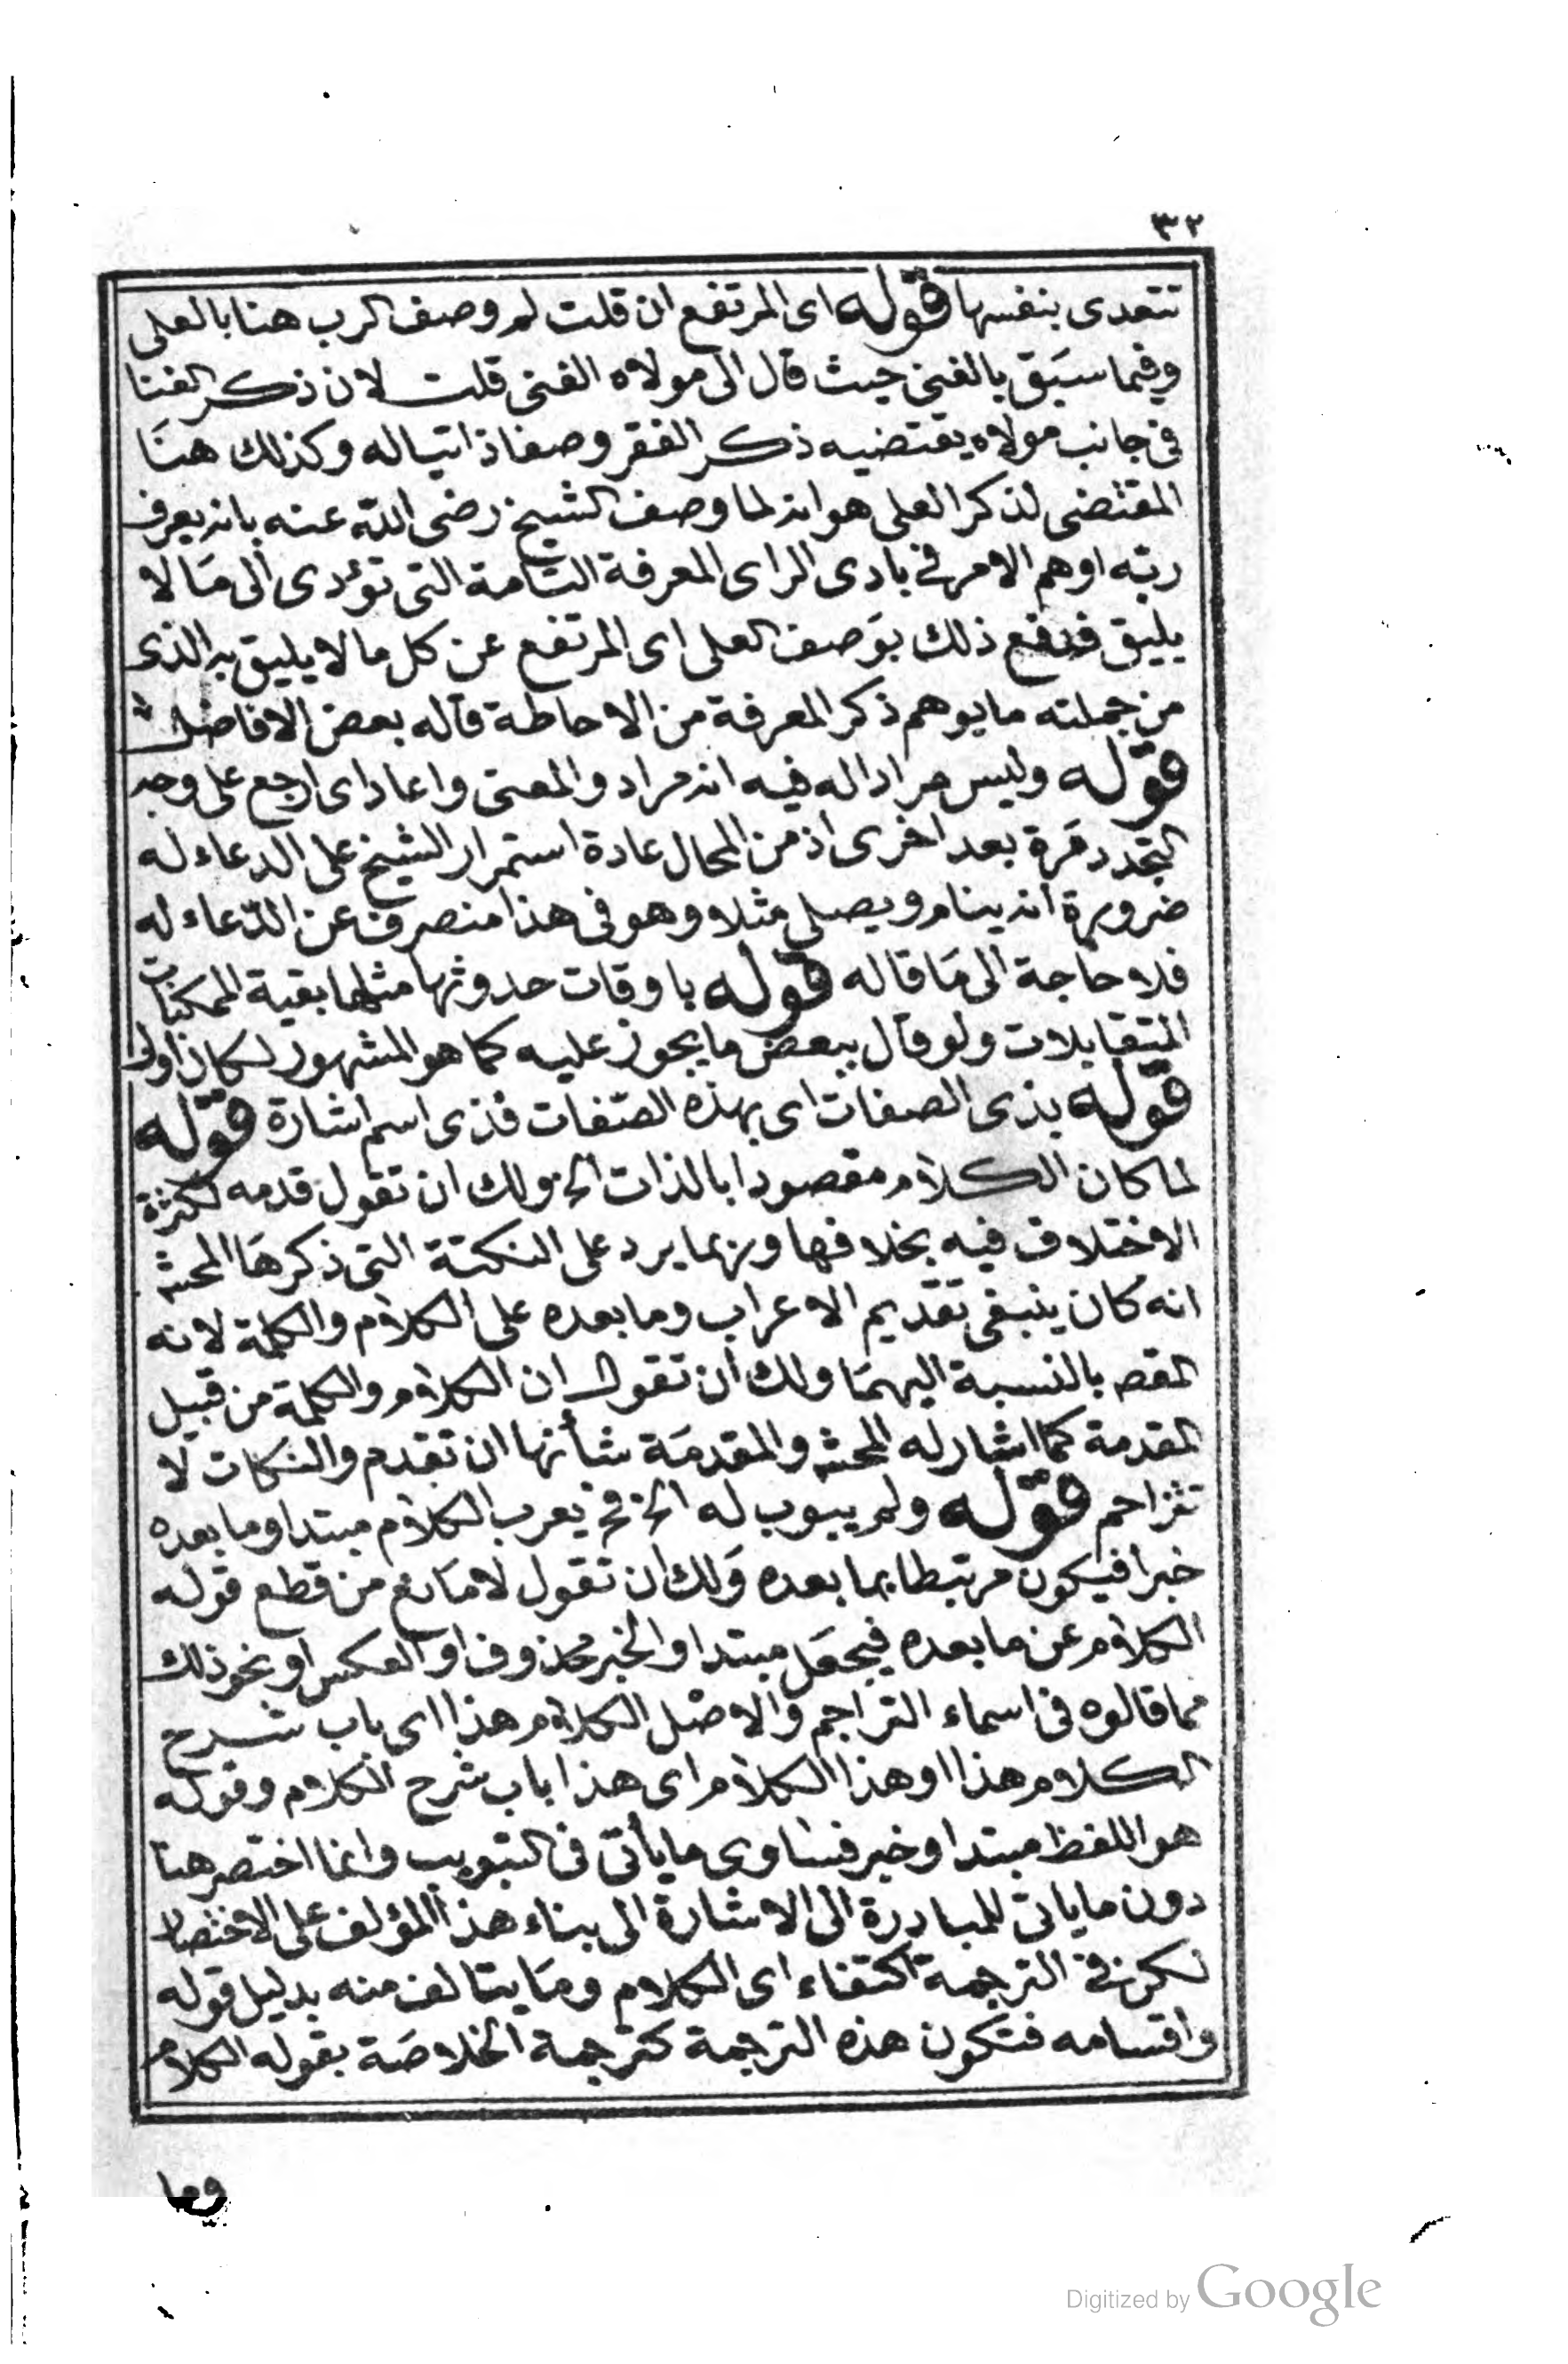 ٣٢
تتعدى بنفسها قوله اى المرتفع ان قلت لم وصف الرب هنا بالعلى
وفيما سبق بالغنى حيث قال الى مولاه الغنى قلت لان ذكر الغنا
فى جانب مولاه يقتضيه ذكر الفقر وصفا ذاتيا له وكذلك هنا
المقتضى لذكر العلى هو انه لما وصف الشيخ رضى الله عنه بانه يعرف
ربه اوهم الامر فى بادى الراى المعرفة التامة التى تؤدى الى ما لا
يليق فدفع ذلك بوصف العلى اى المرتفع عن كل ما لا يليق به الذى
من جملته ما يوهم ذكر المعرفة من الاحاطة قاله بعض الافاضل
قوله وليس مرادا له فيه انه مراد والمعنى واعاد اى ارجع على وجه
التجدد مرة بعد اخرى اذ من المحال عادة استمرار الشيخ على الدعاء له
ضرورة انه ينام ويصلى مثلا وهو فى هذا منصرف عن الدعاء له
فلا حاجة الى ما قاله قوله باوقات حدوثها مثلها بقية الممكنات
المتقابلات ولو قال ببعض ما يجوز عليه كما هو المشهور لكان اولى
قوله بذى الصفات اى بهذه الصفات فذى اسم اشارة قوله
لما كان الكلام مقصودا بالذات الخ ولك ان تقول قدمه لكثرة
الاختلاف فيه بخلافها وربما يرد على النكتة التى ذكرها المحشى
انه كان ينبغى تقديم الاعراب وما بعده على الكلام والكلمة لانه
المقص بالنسبة اليهما ولك ان تقول ان الكلام والكلمة من قبيل
المقدمة كما اشار له المحشى والمقدمة شأنها ان تقدم والنكات لا
تتزاحم قوله ولم يبوب له الخ فح يعرب الكلام مبتدا وما بعده
خبرا فيكون مرتبطا بما بعده ولك ان تقول لا مانع من قطع قوله
الكلام عن ما بعده فيجعل مبتدا والخبر محذوف او العكس او نحو ذلك
مما قالوه فى اسماء التراجم والاصل الكلام هذا اى باب شرح
الكلام هذا او هذا الكلام اى هذا باب شرح الكلام وقوله
هو اللفظ مبتدا وخبر فساوى ما يأتى فى التبويب وانما اختصر هنا
دون ما ياتى للمبادرة الى الاشارة الى بناء هذا المؤلف على الاختصار
لكن فى الترجمة اكتفاء اى الكلام وما يتالف منه بدليل قوله
واقسامه فتكون هذه الترجمة كترجمة الخلاصة بقوله الكلام
وما
Digitized by Google